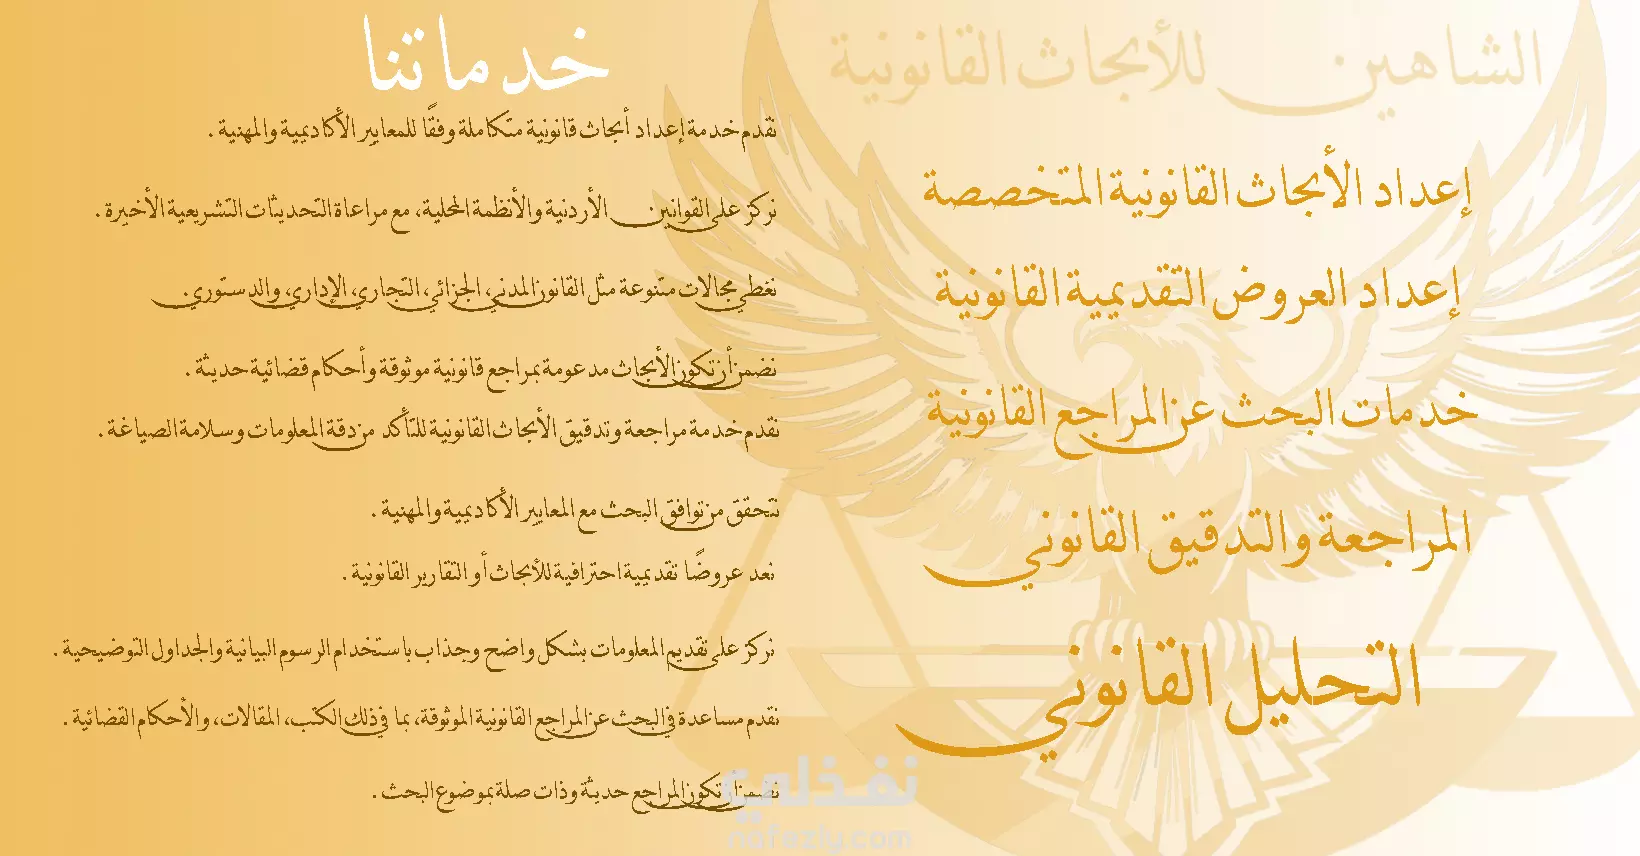 الشاهين للأبحاث القانونية
إعداد الأبحاث القانونية المتخصصة
إعداد العروض التقديمية القانونية
خدمات البحث عن المراجع القانونية
المراجعة والتدقيق القانوني
التحليل القانوني
خدماتنا
نقدم خدمة إعداد أبحاث قانونية متكاملة وفقًا للمعايير الأكاديمية والمهنية .
نركز على القوانين الأردنية والأنظمة المحلية، مع مراعاة التحديثات التشريعية الأخيرة .
نغطي مجالات متنوعة مثل القانون المدني، الجزائي، التجاري، الإداري، والدستوري.
نضمن أن تكون الأبحاث مدعومة بمراجع قانونية موثوقة وأحكام قضائية حديثة .
نقدم خدمة مراجعة وتدقيق الأبحاث القانونية للتأكد من دقة المعلومات وسلامة الصياغة .
نتحقق من توافق البحث مع المعايير الأكاديمية والمهنية .
نعد عروضًا تقديمية احترافية للأبحاث أو التقارير القانونية .
نركز على تقديم المعلومات بشكل واضح وجذاب باستخدام الرسوم البيانية والجداول التوضيحية .
نقدم مساعدة في البحث عن المراجع القانونية الموثوقة، بما في ذلك الكتب، المقالات، والأحكام القضائية .
نضمن أن تكون المراجع حديثة وذات صلة بموضوع البحث .
نفذلي
nafezly.com